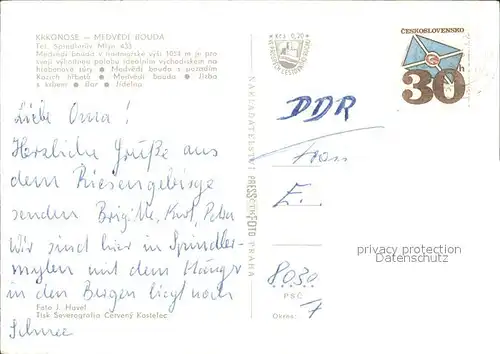 KRKONOŠE — MEDVĚDÍ BOUDA
Tel. Špindlerův Mlýn 433
Medvědí bouda v nadmořské výši 1054 m je pro
svoji výhodnou polohu ideálním východiskem na
hřebenové túry ● Medvědí bouda s pozadím
Kozích hřbetů ● Medvědí bouda ● Jizba
s krbem ● Bar ● Jídelna
Liebe Oma!
Herzliche Grüße aus
dem Riesengebirge
senden Brigitte, Kurt, Peter
Wir sind hier in Spindler-
mylen mit dem
in den Bergen liegt noch
Schnee
Foto J. Havel
Tisk Severografia Červený Kostelec
NAKLADATELSTVÍ PRESSFOTO PRAHA
Kčs 0,20
VE PROSPĚCH CESTOVNÍHO RUCHU
ČESKOSLOVENSKO
30 h
DDR
Frau
E.
privacy protection
Datenschutz
8030
PSČ
Okres: